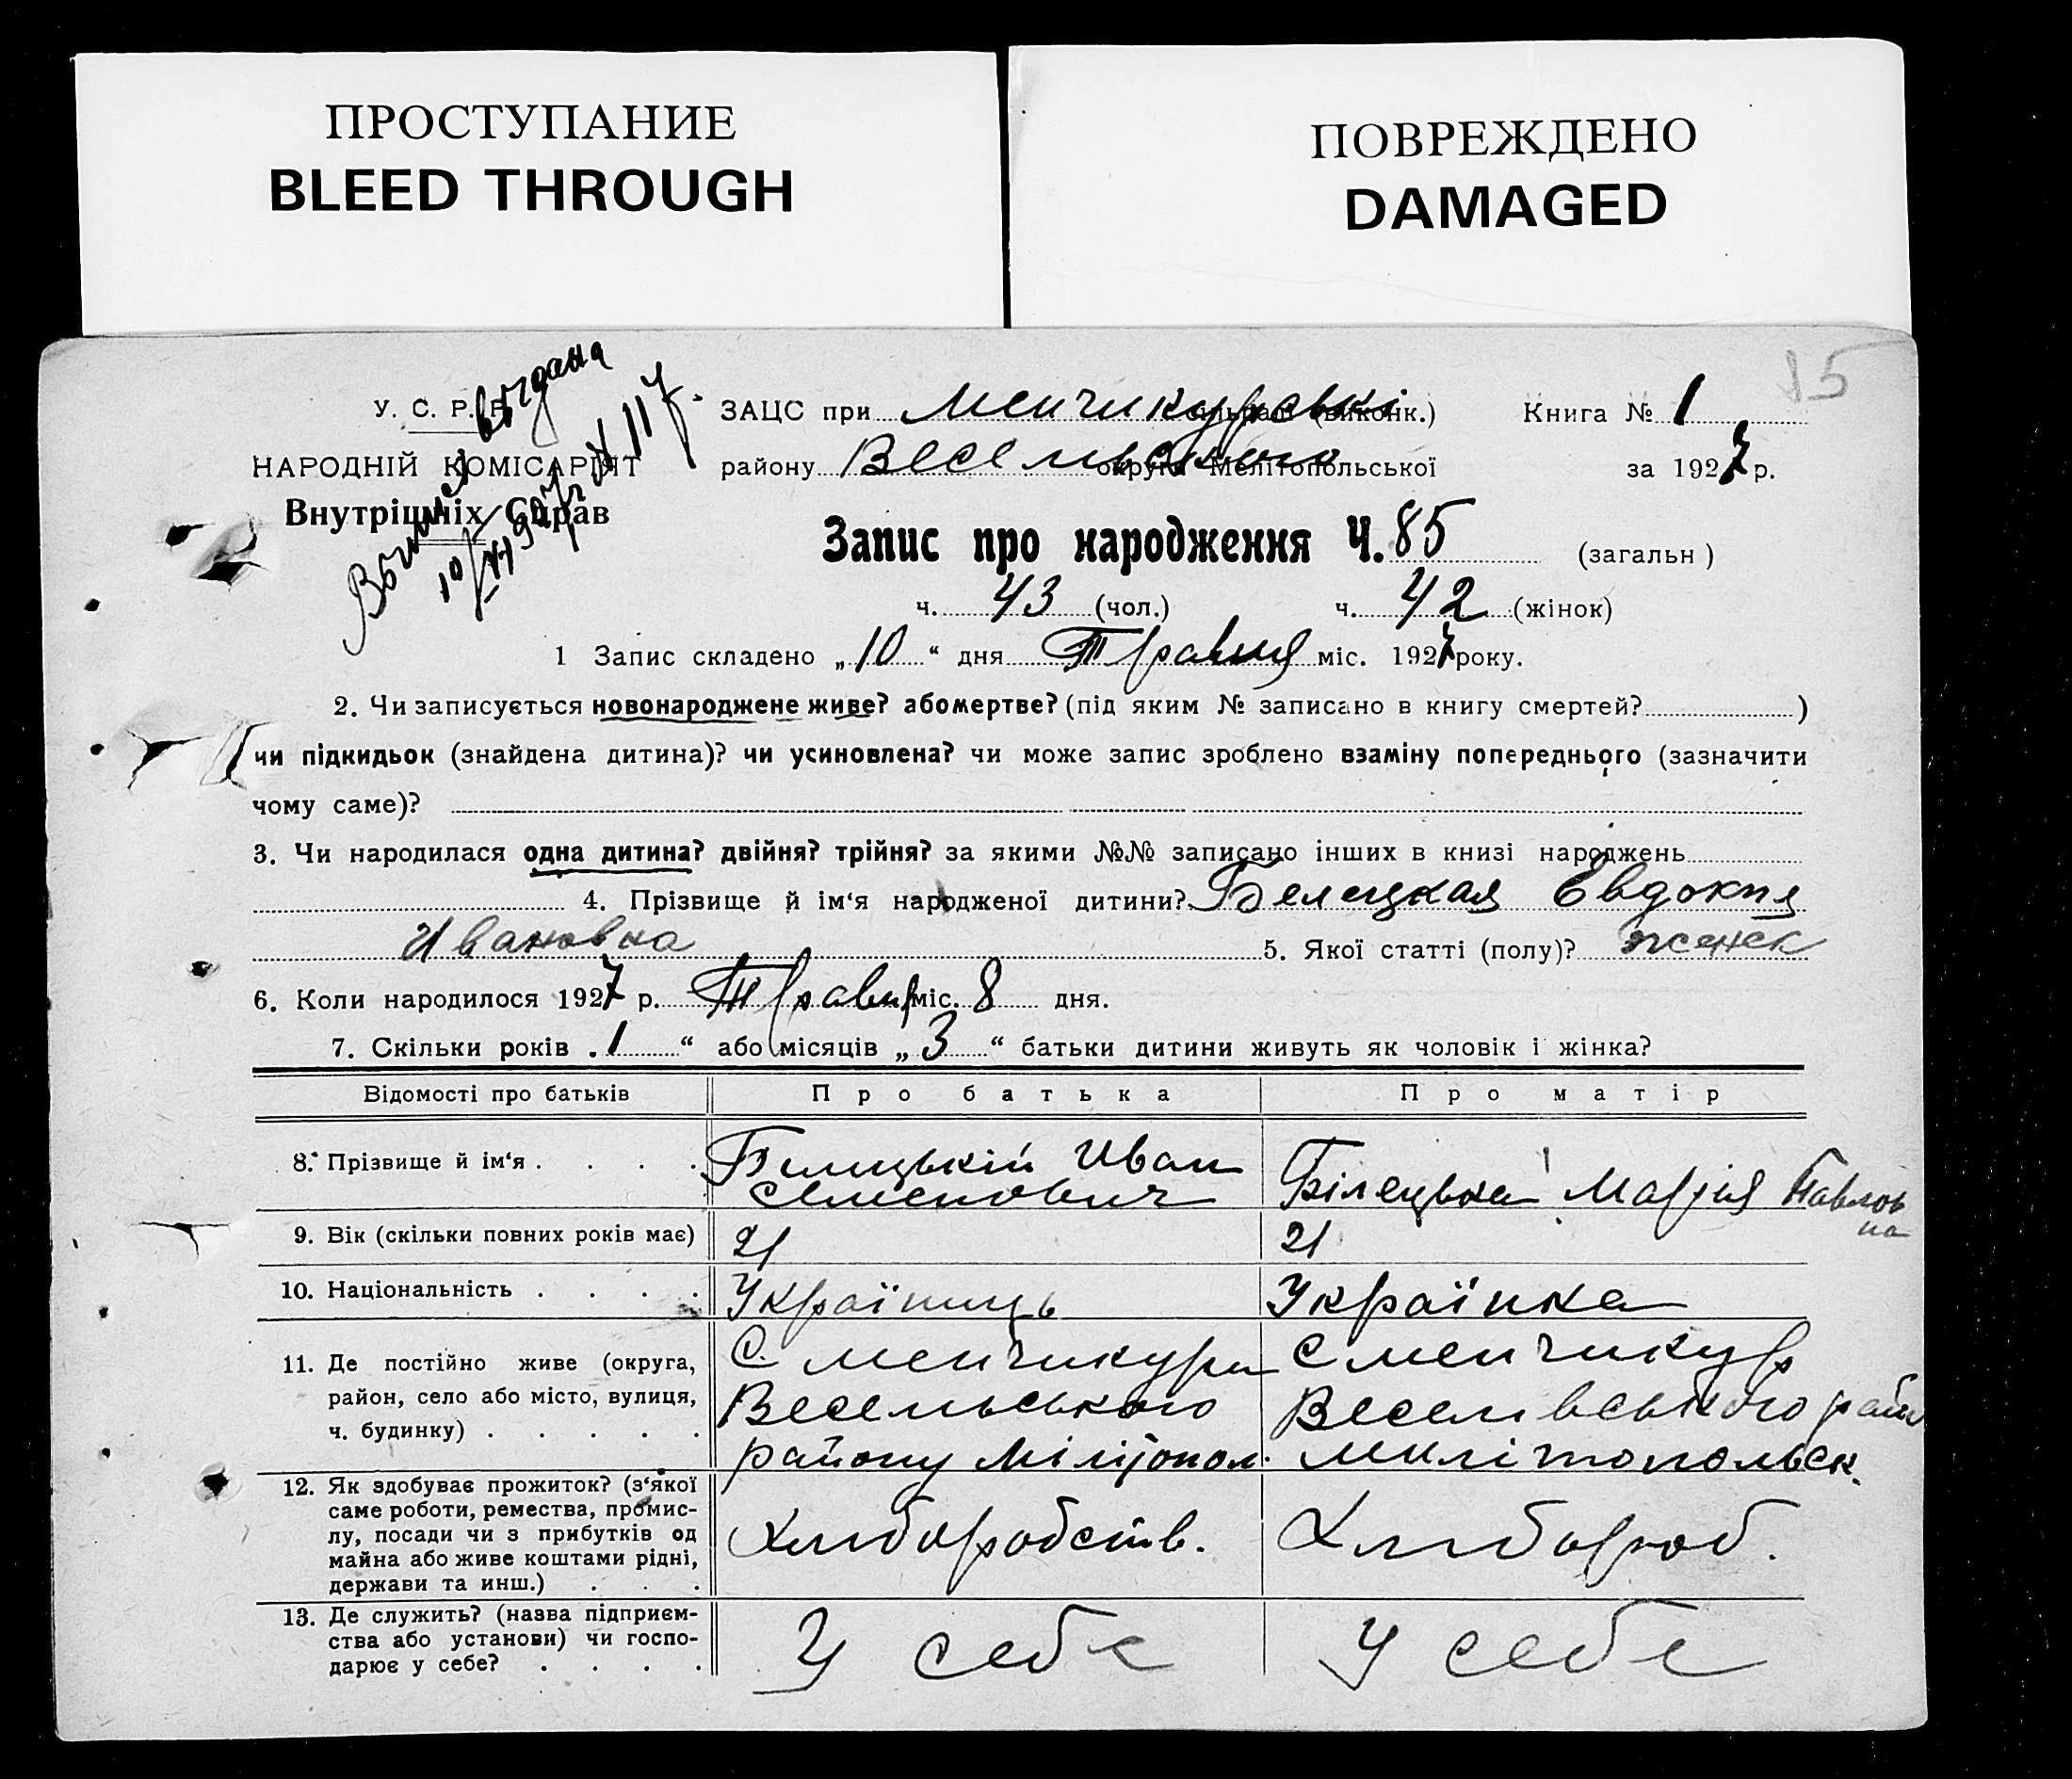 ПРОСТУПАНИЕ
BLEED THROUGH
ПОВРЕЖДЕНО
DAMAGED
15
У. С. Р. Р.
НАРОДНІЙ КОМІСАРІЯТ
Внутрішніх Справ
видана
ЗАЦС при Менчикурські сільраді (виконк.) Книга № 1
району Весельського округи Мелітопольської за 1927 р.
Запис про народження Ч. 85 (загальн )
ч. 43 (чол.) ч. 42 (жінок)
1 Запис складено „ 10 “ дня Травня міс. 1927 року.
2. Чи записується новонароджене живе? або мертве? (під яким № записано в книгу смертей? )
чи підкидьок (знайдена дитина)? чи усиновлена? чи може запис зроблено взаміну попереднього (зазначити
чому саме)?
3. Чи народилася одна дитина? двійня? трійня? за якими №№ записано інших в книзі народжень
4. Прізвище й ім‘я народженої дитини? Белецкая Евдокия
Ивановна 5. Якої статті (полу)? женск
6. Коли народилося 1927 р. Травня міс. 8 дня.
7. Скільки років „ 1 “ або місяців „ 3 “ батьки дитини живуть як чоловік і жінка?
Відомості про батьків Про батька Про матір
8. Прізвище й ім‘я . . . . Билицькій Иван
Семенович Білецька Марія Павлов
на
9. Вік (скільки повних років має) 21 21
10. Національність . . . . Україниць Українка
11. Де постійно живе (округа,
район, село або місто, вулиця,
ч. будинку) . . . . .
С. Менчикури
Весельського
району Мілітопол.
С Менчикур
Веселівського райо
Милітопольск.
12. Як здобуває прожиток? (з‘якої
саме роботи, ремества, промис-
лу, посади чи з прибутків од
майна або живе коштами рідні,
держави та инш.) . . .
Хлиборобств. Хлибороб.
13. Де служить? (назва підприєм-
ства або установи) чи госпо-
дарює у себе? . . . .
У себе У себе